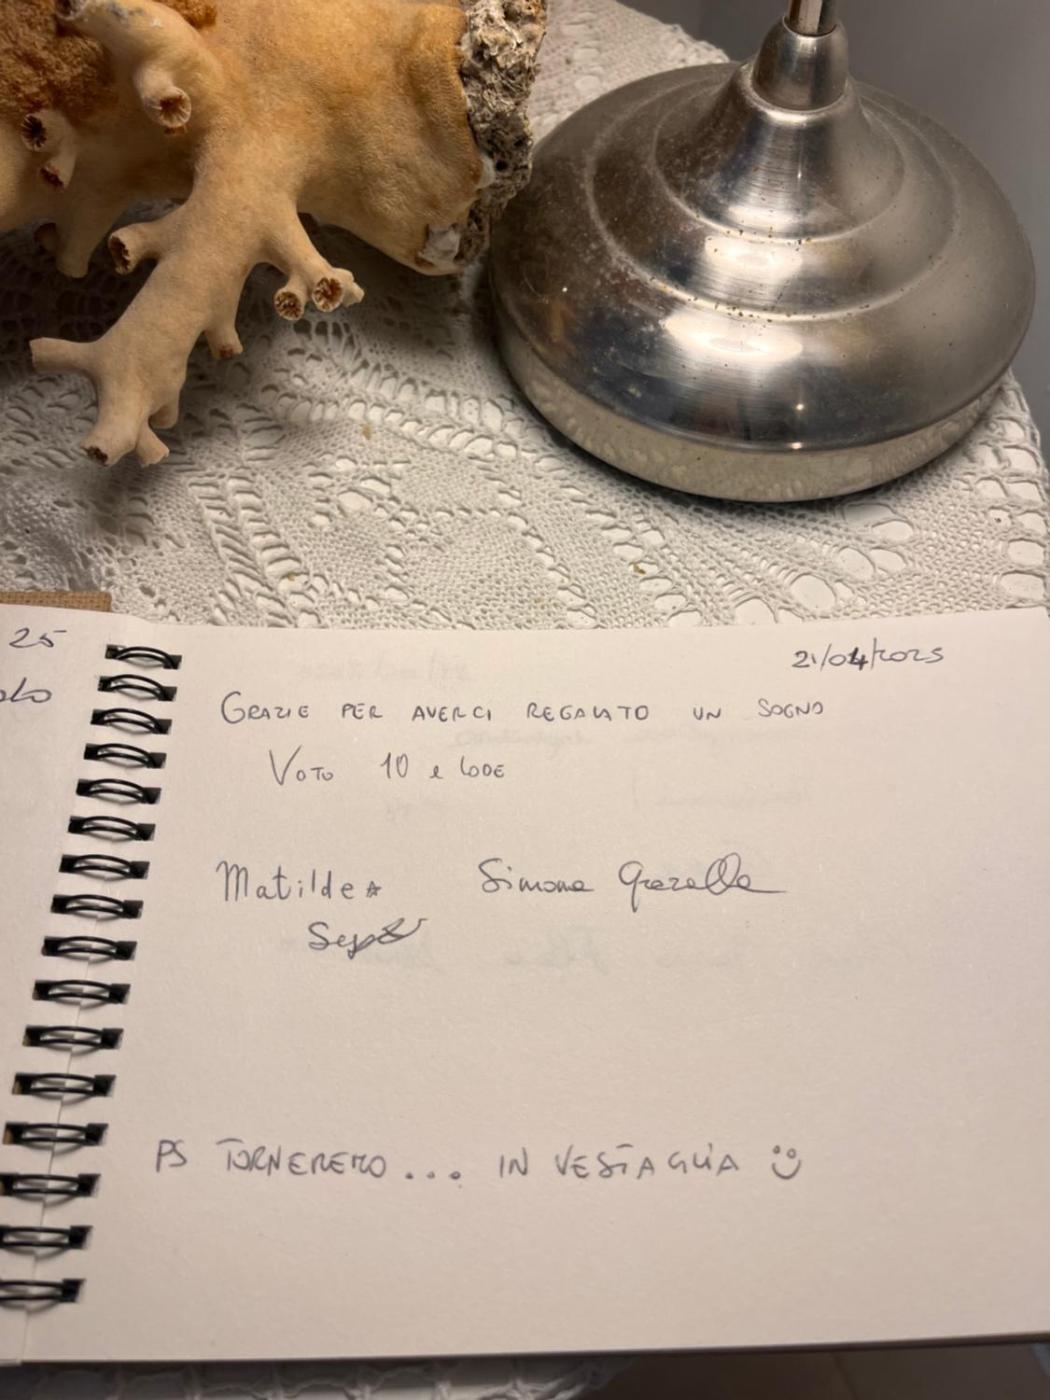 25
21/04/2025
GRAZIE PER AVERCI REGALATO UN SOGNO
VOTO 10 e LODE
Matilde Simona Grazella
PS TORNEREMO... IN VESTAGLIA